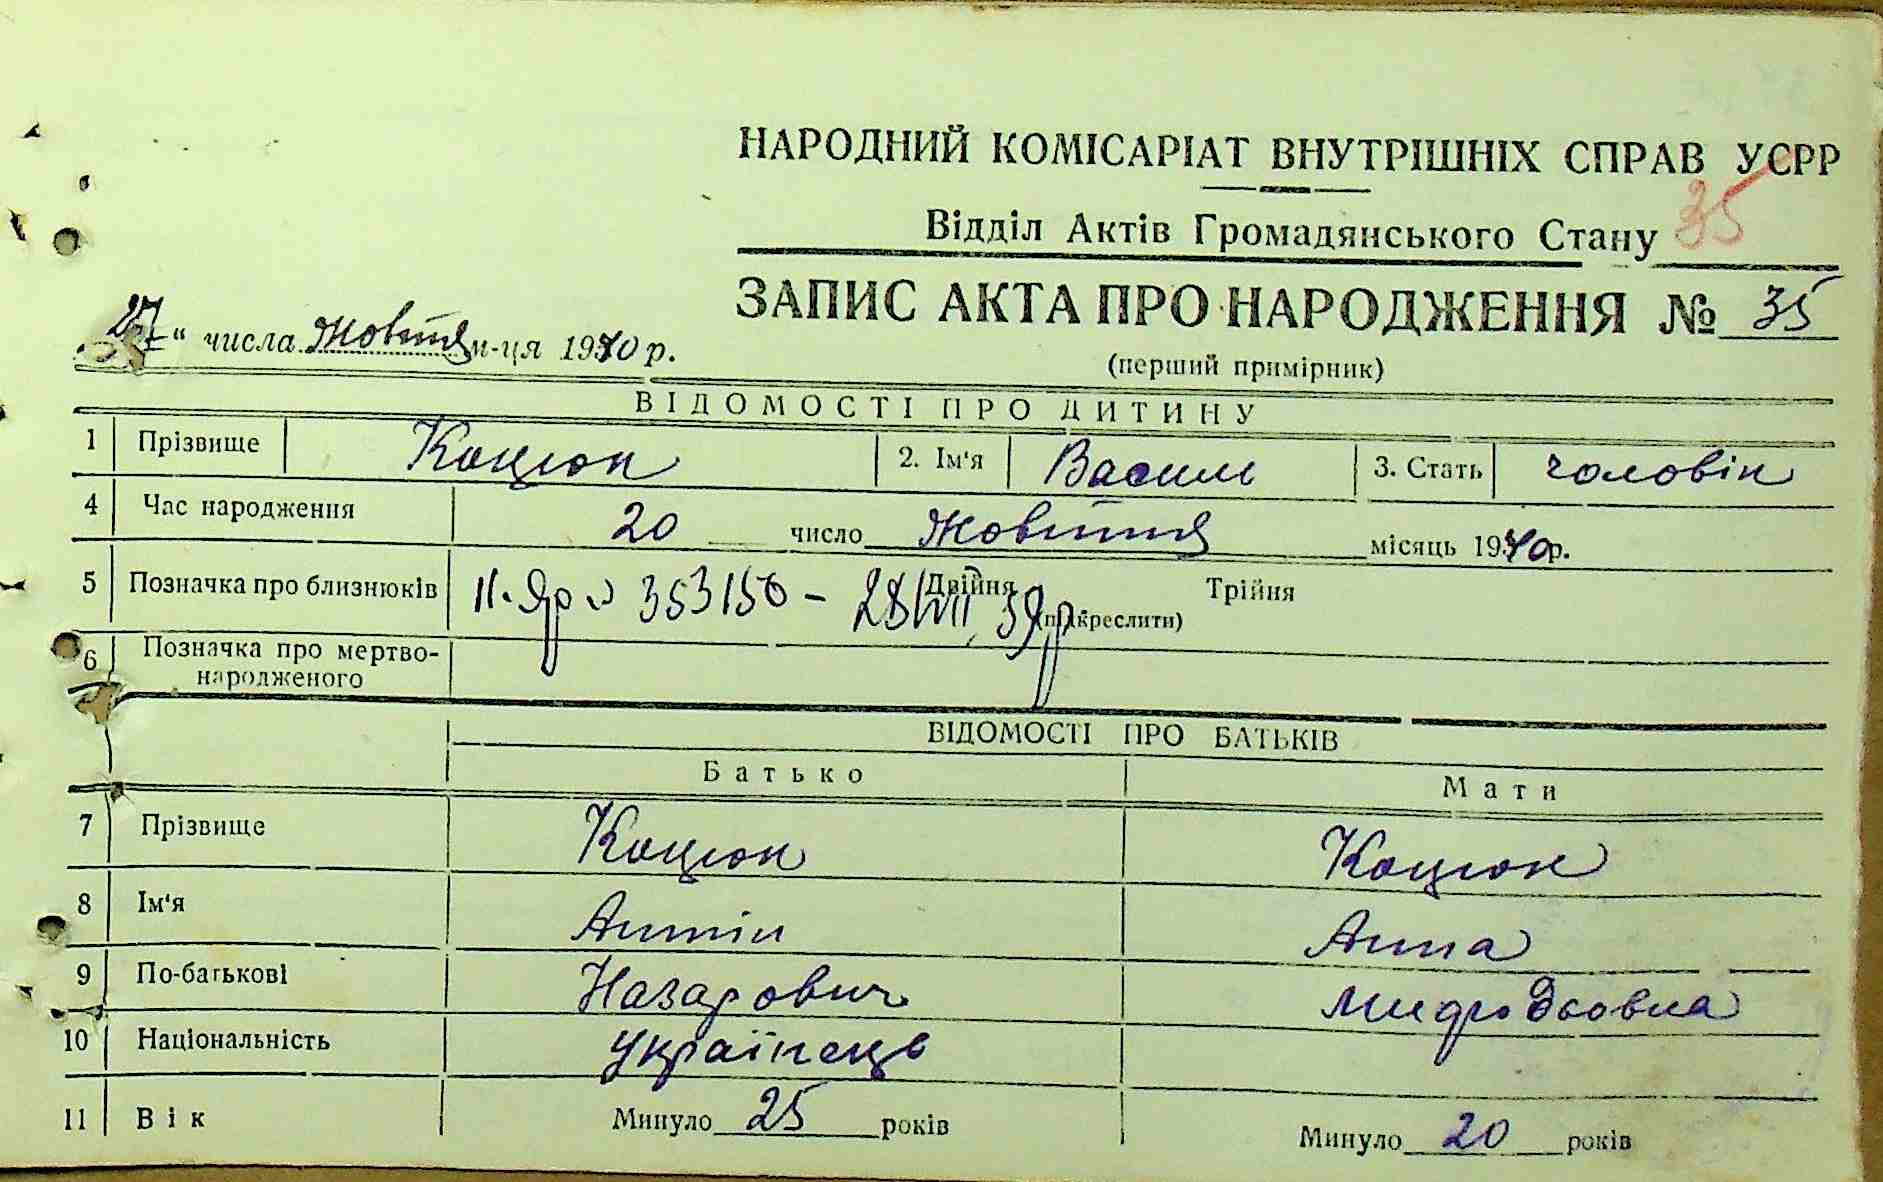 НАРОДНИЙ КОМІСАРІАТ ВНУТРІШНІХ СПРАВ УСРР
35
Відділ Актів Громадянського Стану
ЗАПИС АКТА ПРО НАРОДЖЕННЯ № 35
27 " числа Жовтня м-ця 1940 р.
(перший примірник)
ВІДОМОСТІ ПРО ДИТИНУ
1 Прізвище Коцюк 2. Ім'я Василь 3. Стать чоловік
4 Час народження 20 число Жовтня місяць 1940р.
5 Позначка про близнюків 353156 - 28/VIII 39р. Двійня Трійня
(підкреслити)
6 Позначка про мертво-
народженого
ВІДОМОСТІ ПРО БАТЬКІВ
Батько Мати
7 Прізвище Коцюк Коцюк
8 Ім'я Антін Анна
9 По-батькові Назарович
10 Національність Українець
11 Вік Минуло 25 років Минуло 20 років